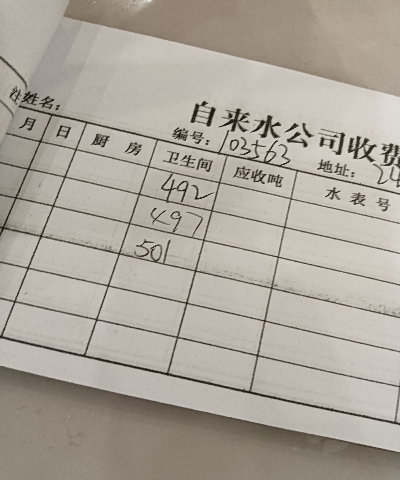 自来水公司收费
姓名：
编号：103563 地址：24
月 日 厨房 卫生间 应收吨 水表号
492
497
501